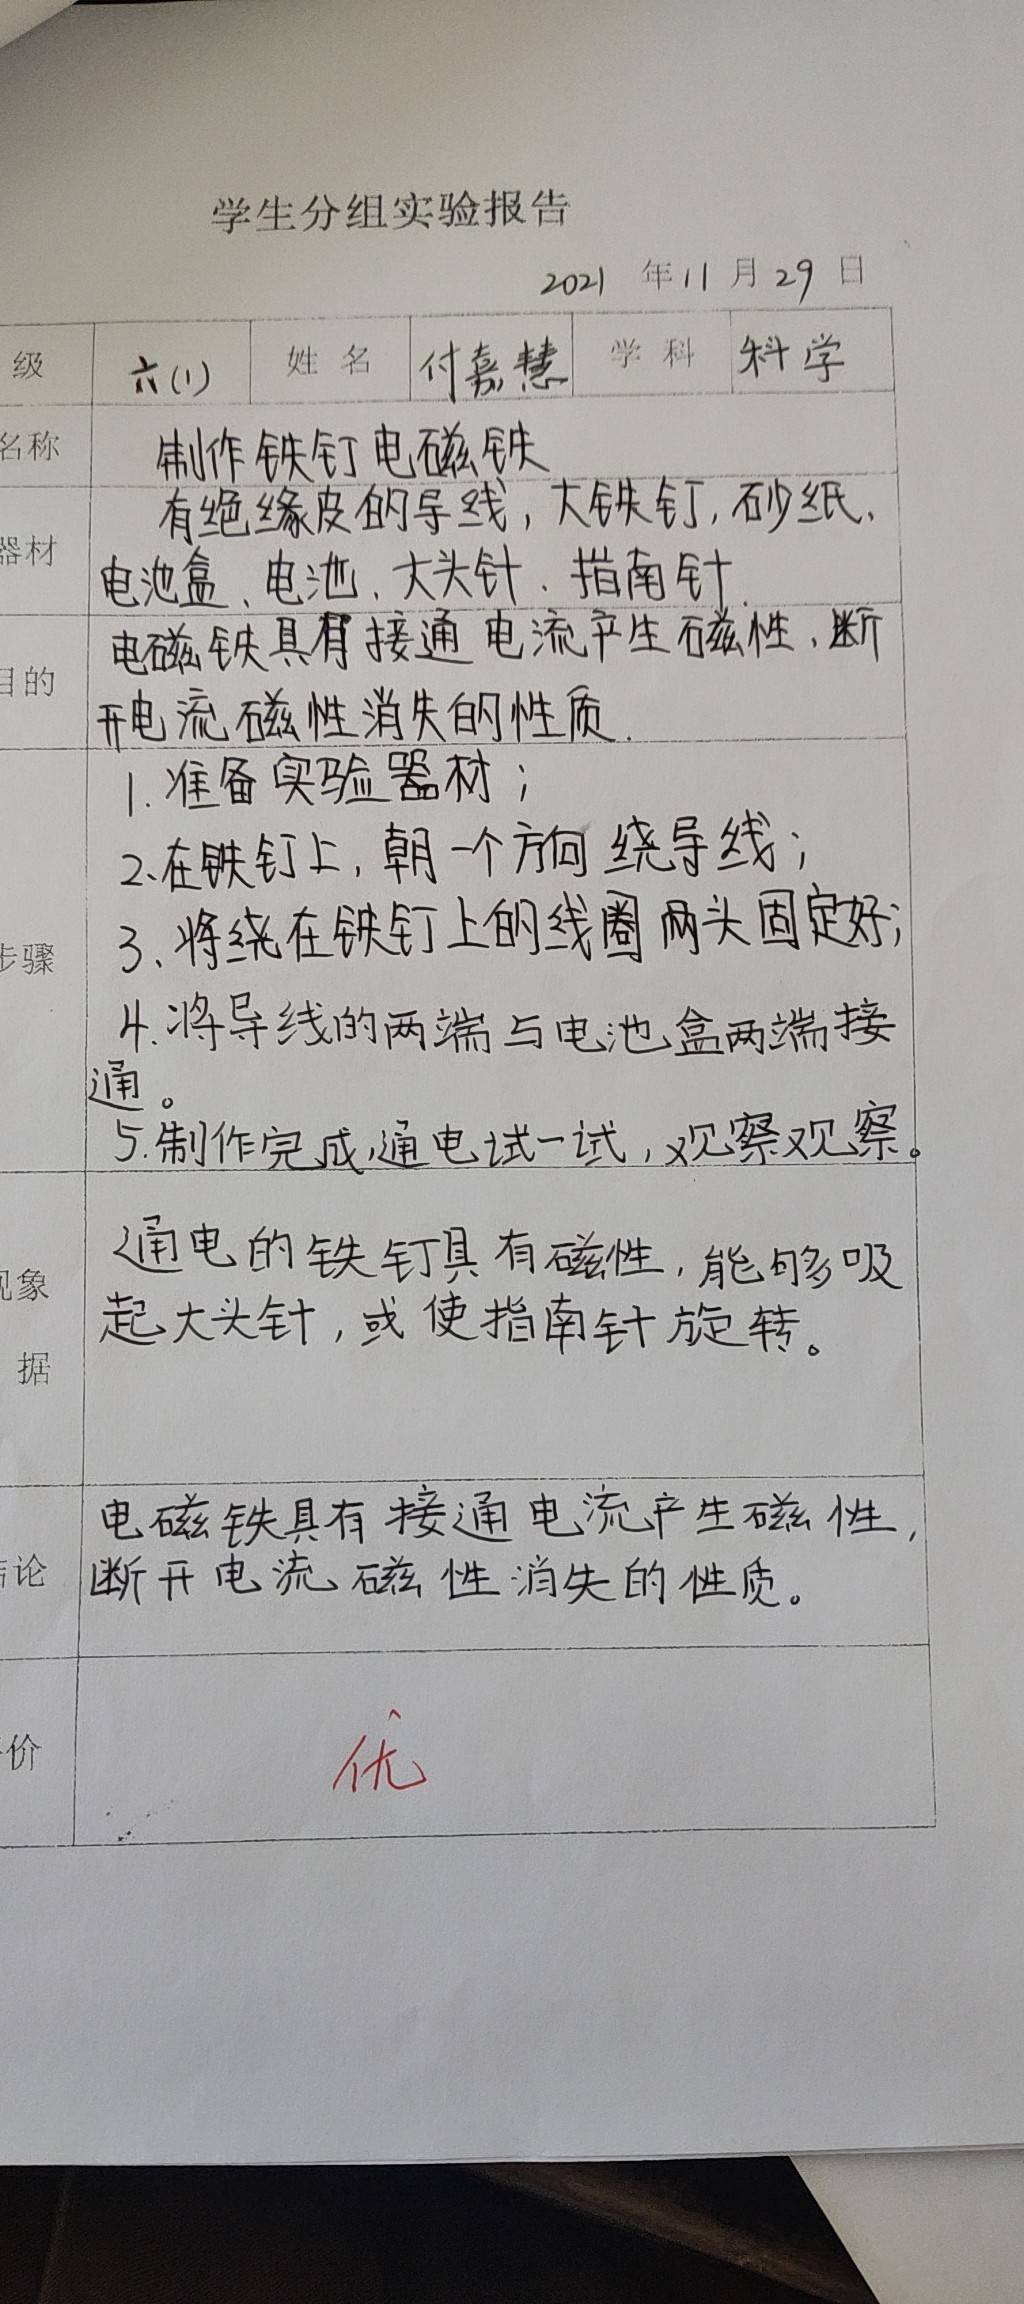 学生分组实验报告
2021 年 11 月 29 日
级 六(1) 姓名 付嘉慧 学科 科学
名称 制作铁钉电磁铁
有绝缘皮的导线,大铁钉,砂纸、
器材
电池盒、电池、大头针、指南针.
电磁铁具有接通电流产生磁性、断
目的
开电流磁性消失的性质.
1.准备实验器材;
2.在铁钉上,朝一个方向绕导线;
步骤 3、将绕在铁钉上的线圈两头固定好;
4.将导线的两端与电池盒两端接
通。
5.制作完成,通电试一试,观察观察。
通电的铁钉具有磁性,能够吸
现象
起大头针,或使指南针旋转。
据
电磁铁具有接通电流产生磁性,
结论 断开电流磁性消失的性质。
价 优